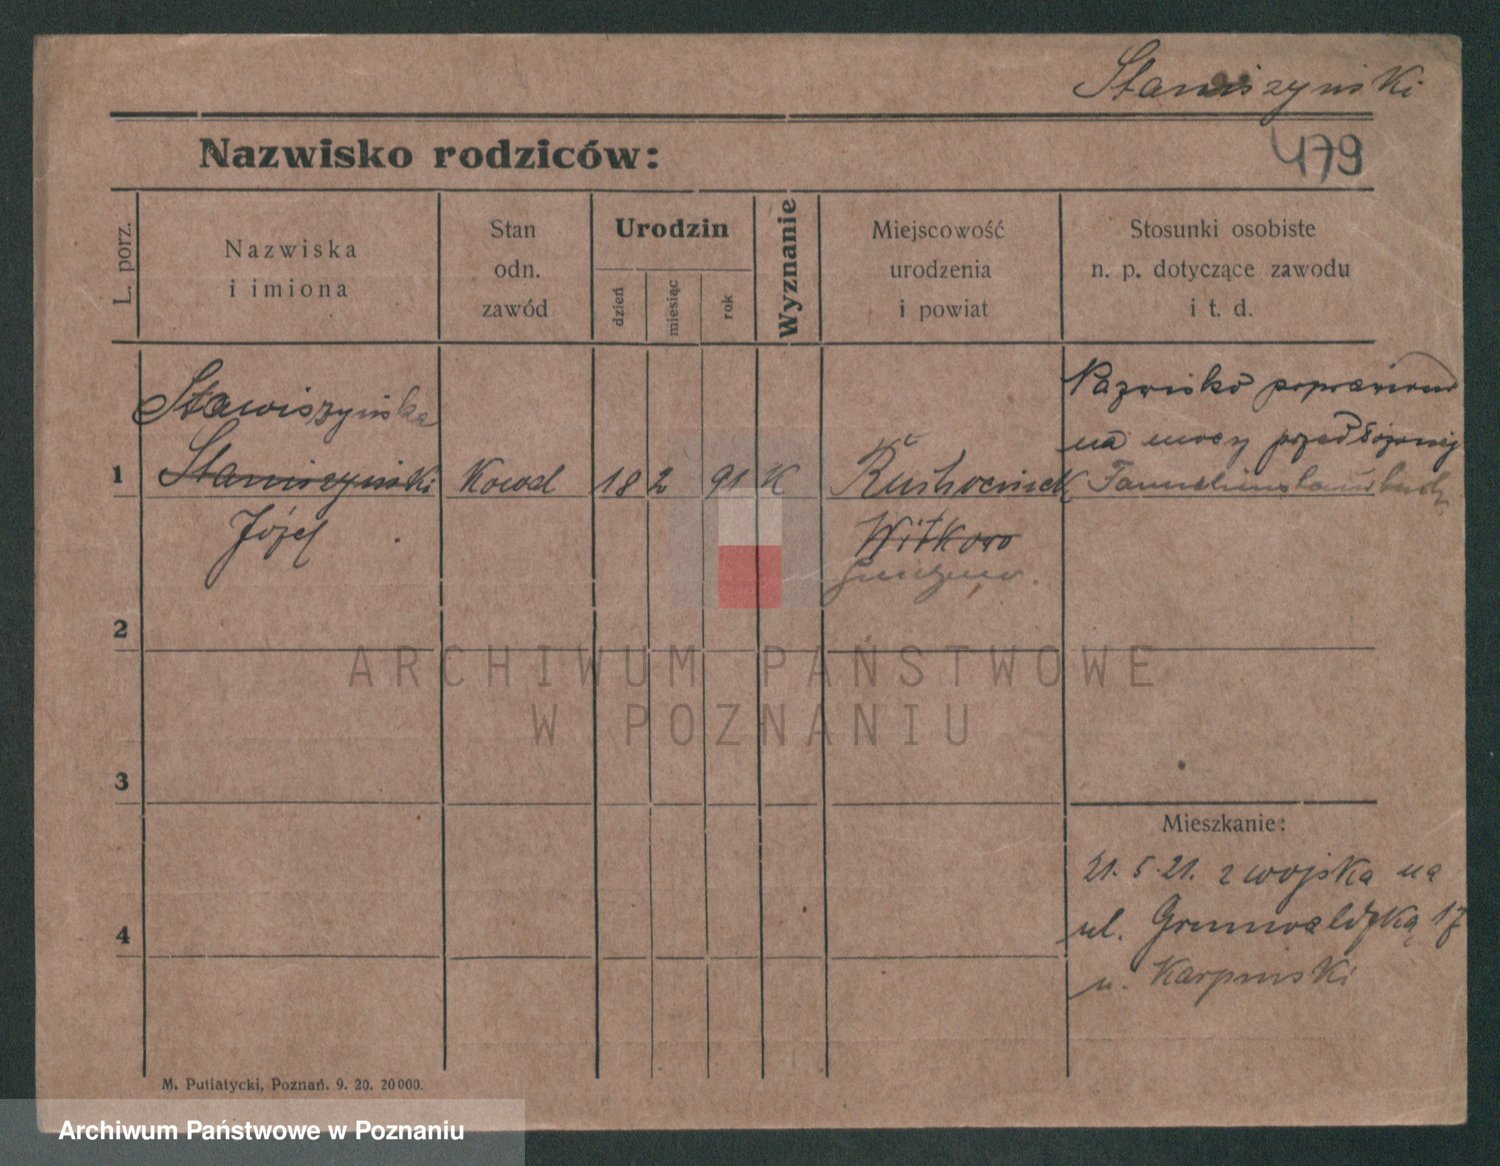 Stawiszyński
479
Nazwisko rodziców:
L. porz.
Nazwiska
i imiona
Stan
odn.
zawód
Urodzin
dzień
miesiąc
rok
Wyznanie
Miejscowość
urodzenia
i powiat
Stosunki osobiste
n. p. dotyczące zawodu
i t. d.
Stawiszyński
Staniszyński
Józef
1
Kowal
18 2 91 K
Witkowo
Nazwisko poprawiono
na mocy przedłożonej
2
3
4
Mieszkanie:
21. 5. 21. z wojska na
ul. Grunwaldzką 17
u. Karpinski
M. Putiatycki, Poznań. 9. 20. 20000.
ARCHIWUM PAŃSTWOWE
W POZNANIU
Archiwum Państwowe w Poznaniu